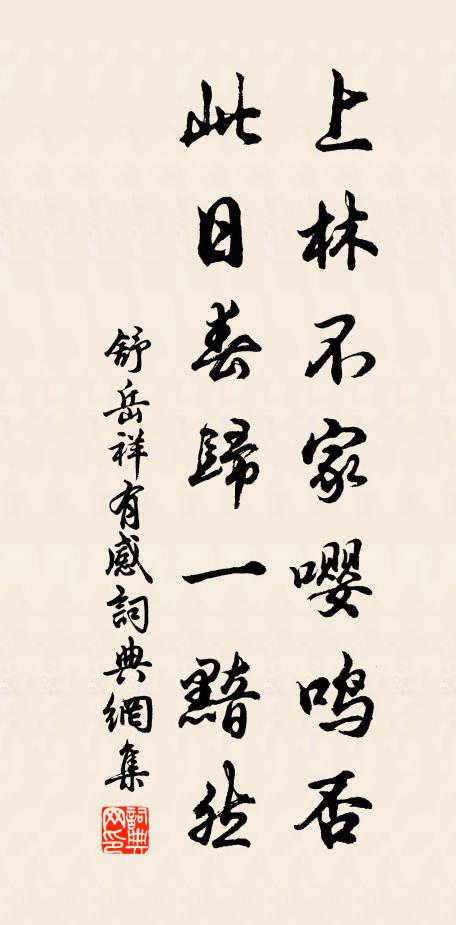 上林不家嚶鳴否
此日春歸一黯然
舒岳祥有感詞典網集
詞典网印